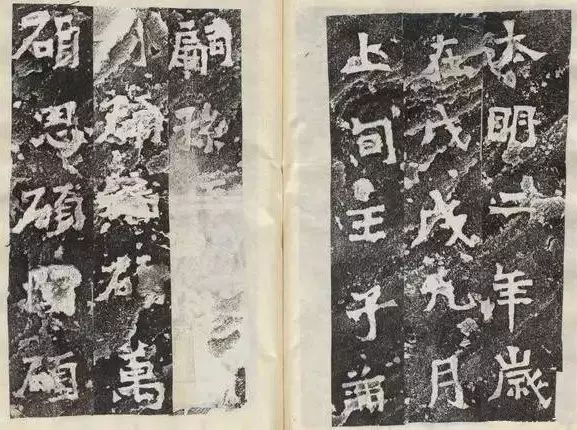 太明二年歲
在戊戌九月
上旬壬子
嗣孫
碩 碩萬
碩思碩 碩